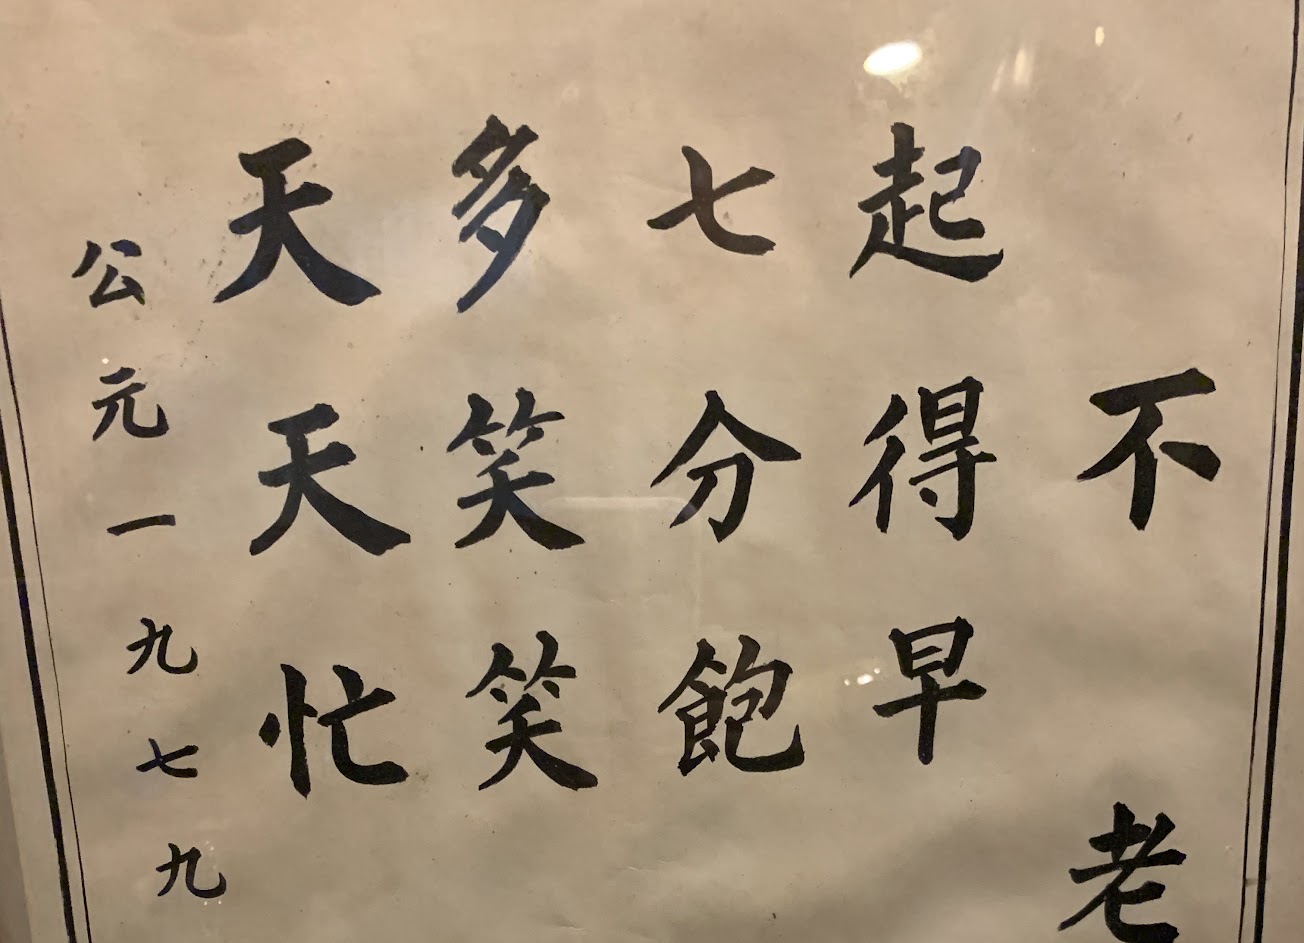 不老
起得早
七分飽
多笑笑
天天忙
公元一九七九